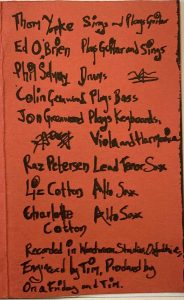 Thom Yorke Sings and Plays Guitar
Ed O'Brien Plays Guitar and Sings
Phil Selway Drums
Colin Greenwood Plays Bass
Jon Greenwood Plays Keyboards,
Viola and Harmonica
Raz Petersen Lead Tenor Sax
Liz Cotton Alto Sax
Charlotte Alto Sax
Cotton
Recorded in Woodworm Studios, Oxfordshire,
Engineered by Tim, Produced by
On a Friday and Tim.